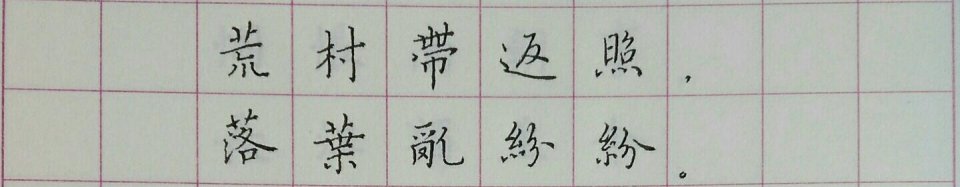 荒村帶返照，
落葉亂紛紛。